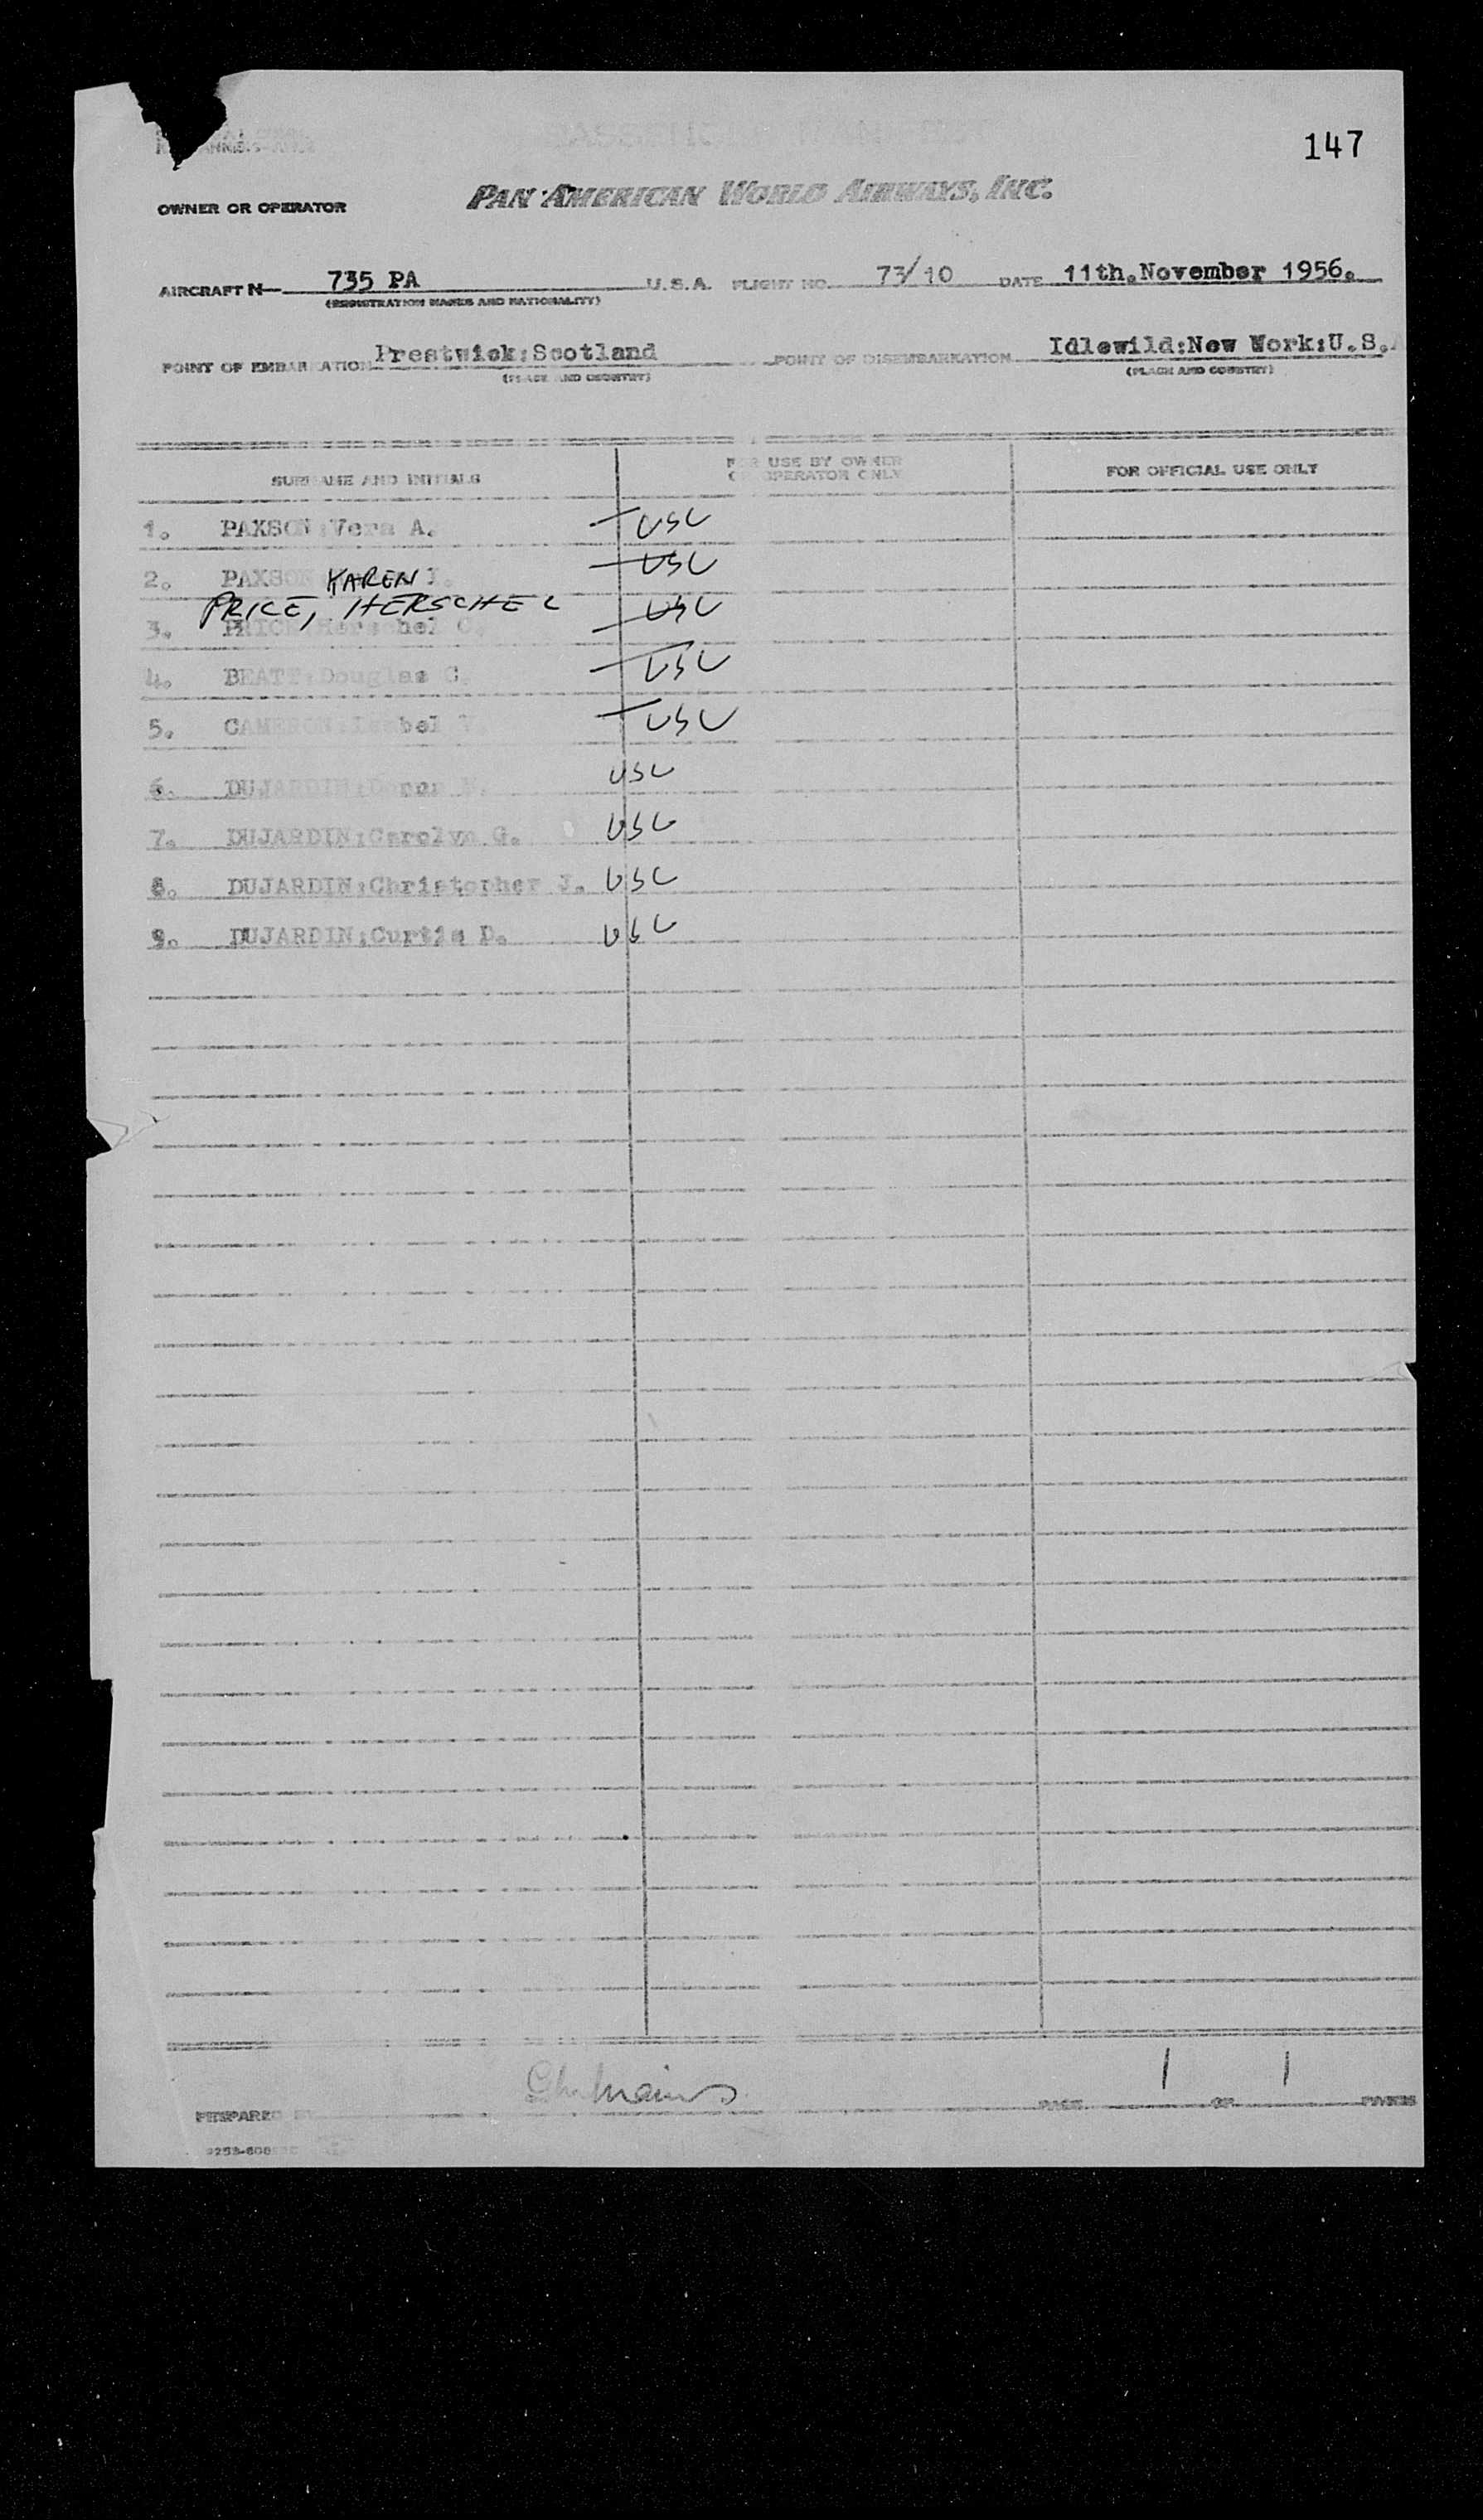 147
OWNER OR OPERATOR PAN AMERICAN WORLD AIRWAYS, INC.
AIRCRAFT N 735 PA U.S.A. FLIGHT NO. 73/10 DATE 11th.November 1956.
(REGISTRATION MARKS AND NATIONALITY)
POINT OF EMBARKATION Prestwick:Scotland POINT OF DISEMBARKATION Idlewild:New York:U.S.A
(PLACE AND COUNTRY) (PLACE AND COUNTRY)
SURNAME AND INITIALS FOR USE BY OWNER OR OPERATOR ONLY FOR OFFICIAL USE ONLY
1. PAXSON:Vera A. USC
2. PAXSON KAREN USC
PRICE, HERSCHEL USC
3. PRICE:Herschel C.
4. BEATT:Douglas C. USC
5. CAMERON:Isabel USC
6. DUJARDIN: USC
7. DUJARDIN:Carolyn G. USC
8. DUJARDIN:Christopher J. USC
9. DUJARDIN:Curtis D. USC
PREPARED BY PAGE 1 OF 1 PAGES
9253-608